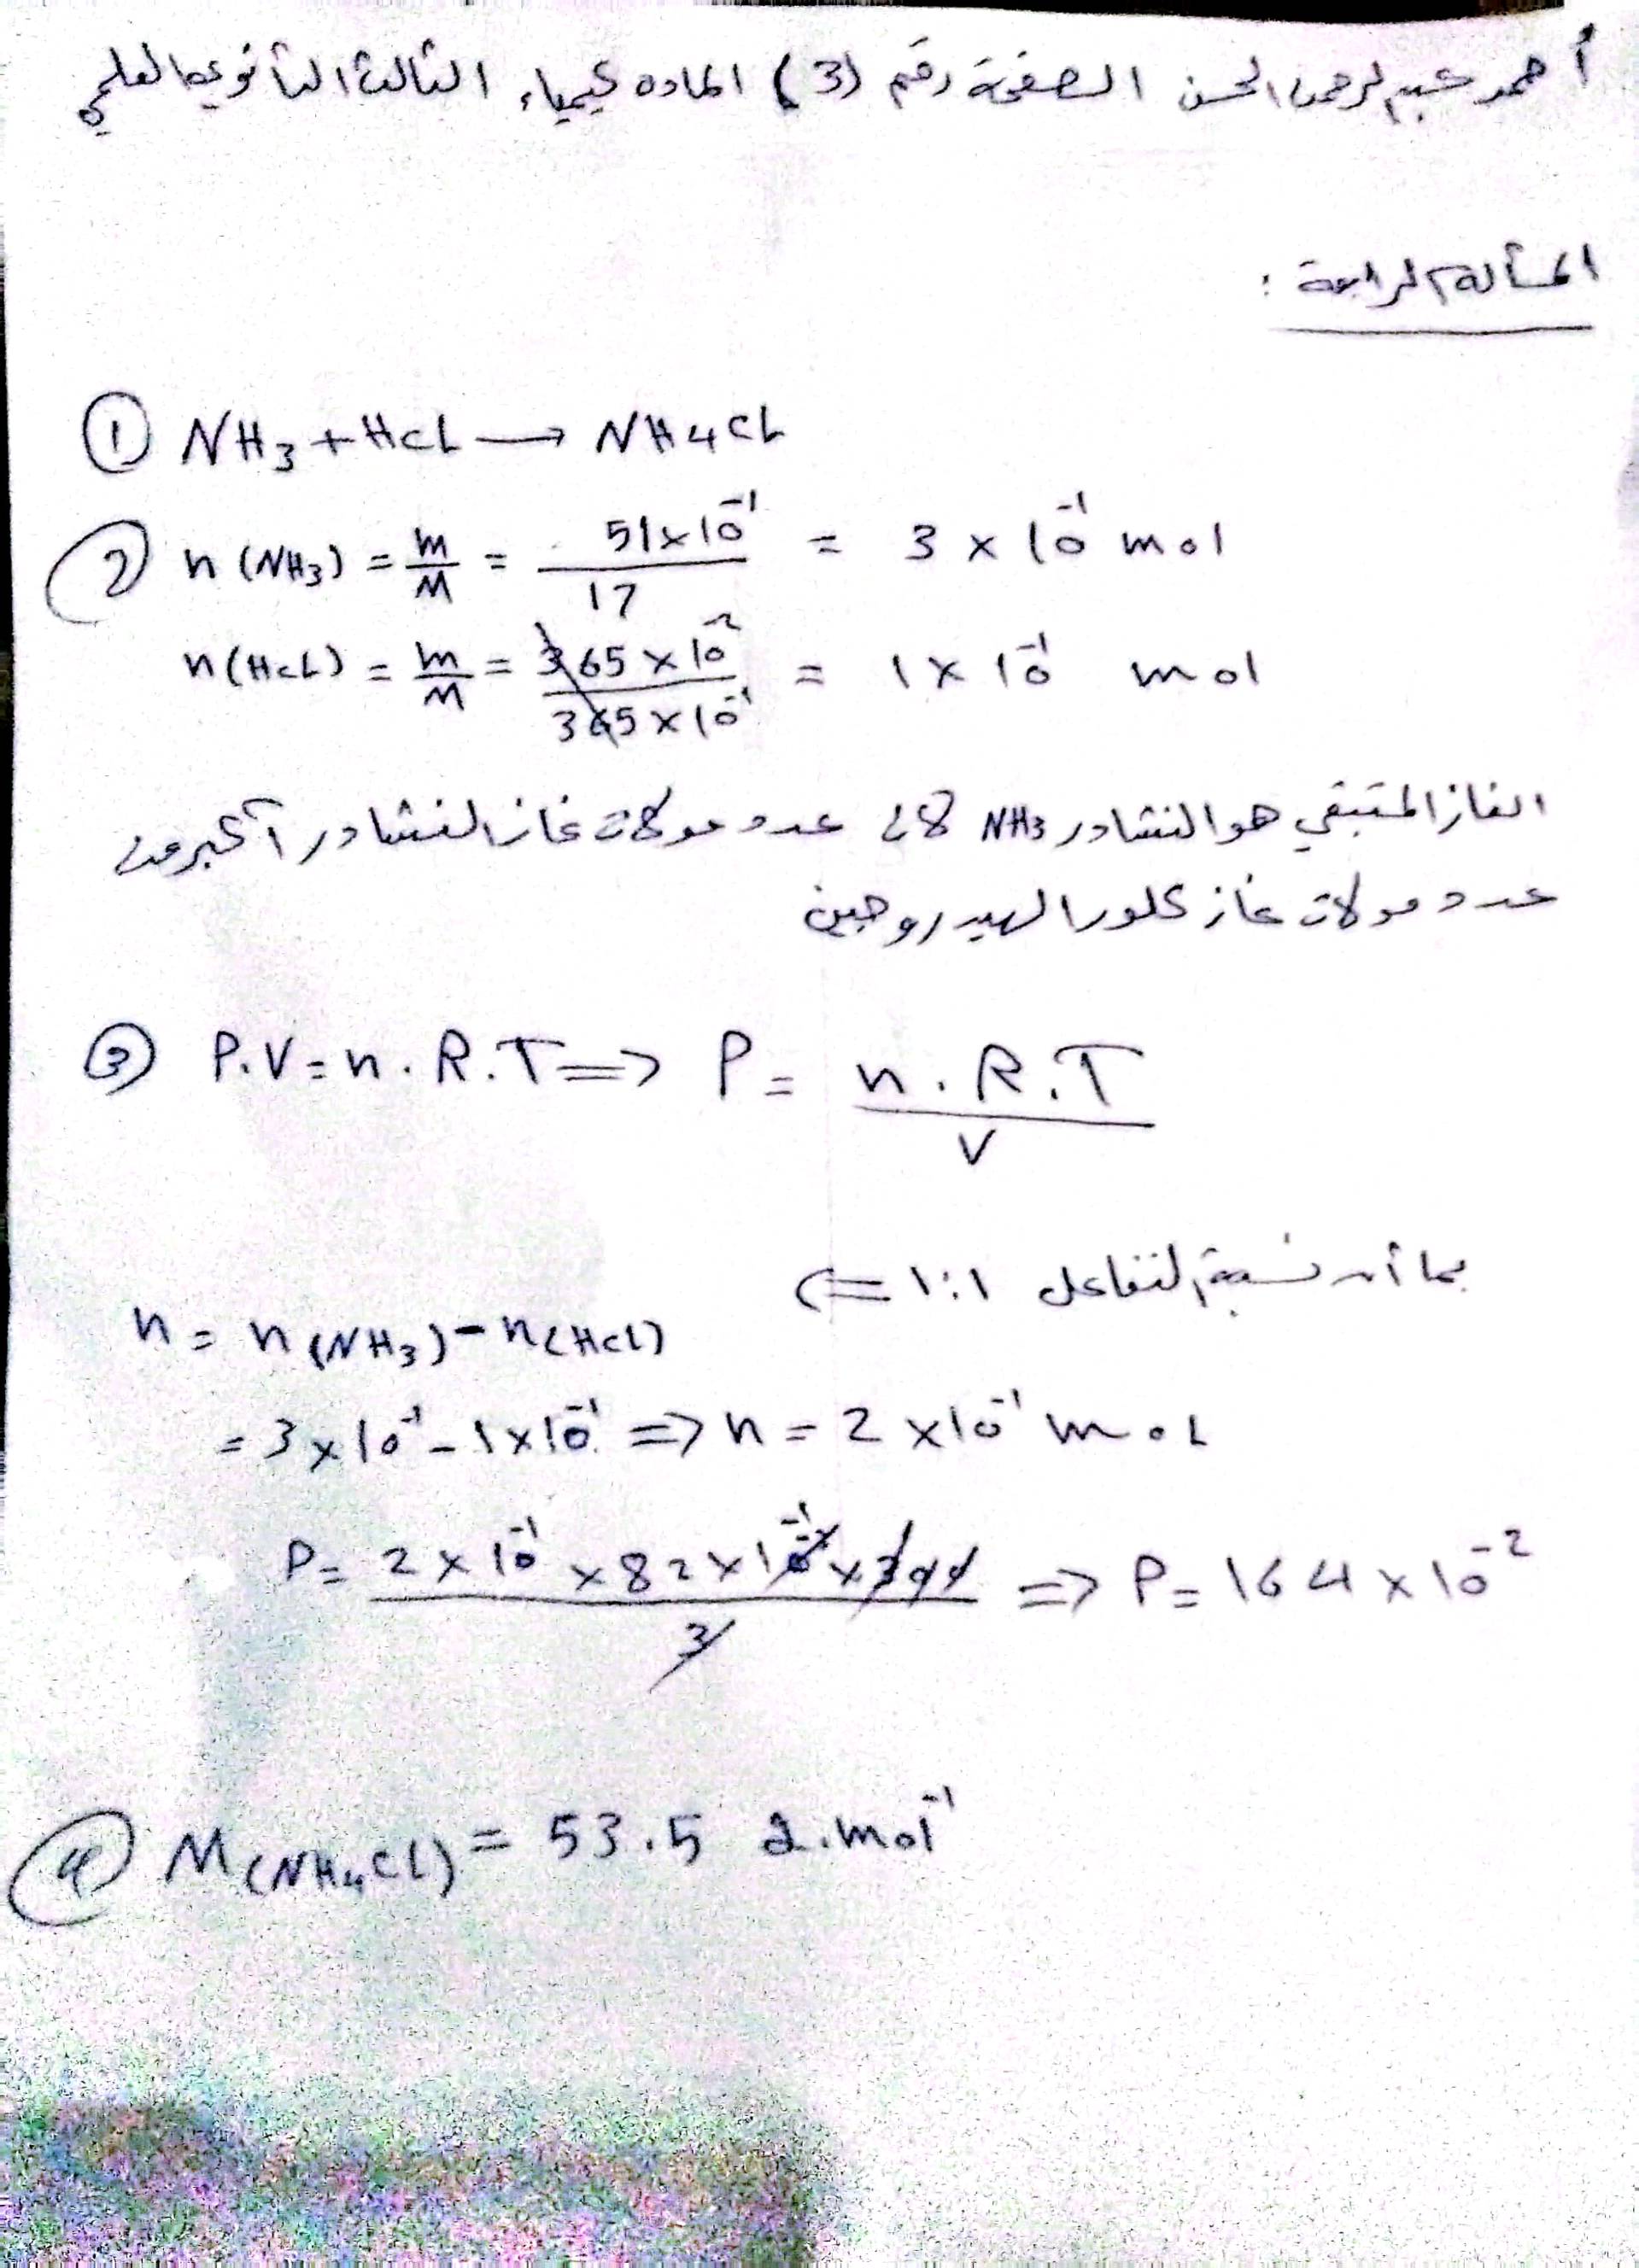 أحمد عبد الرحمن الحسن الصفحة رقم (3) الماده كيمياء الثالث الثانوي العلمي
المسألة الرابعة :
① NH3 + HCL → NH4CL
② n (NH3) = m/M = 51x10⁻¹/17 = 3 x 10⁻¹ mol
n(HCL) = m/M = 365 x 10⁻²/365 x 10⁻¹ = 1 x 10⁻¹ mol
الغاز المتبقي هو النشادر NH3 لأن عدد مولات غاز النشادر أكبر من
عدد مولات غاز كلور الهيدروجين
③ P.V = n.R.T => P = n.R.T/V
بما أن نسبة التفاعل 1:1 <=
n = n(NH3) - n(HCl)
= 3 x 10⁻¹ - 1 x 10⁻¹ => n = 2 x 10⁻¹ moL
P = 2 x 10⁻¹ x 82 x 10 x 300/3 => P = 164 x 10⁻²
④ M(NH4CL) = 53.5 g.mol⁻¹